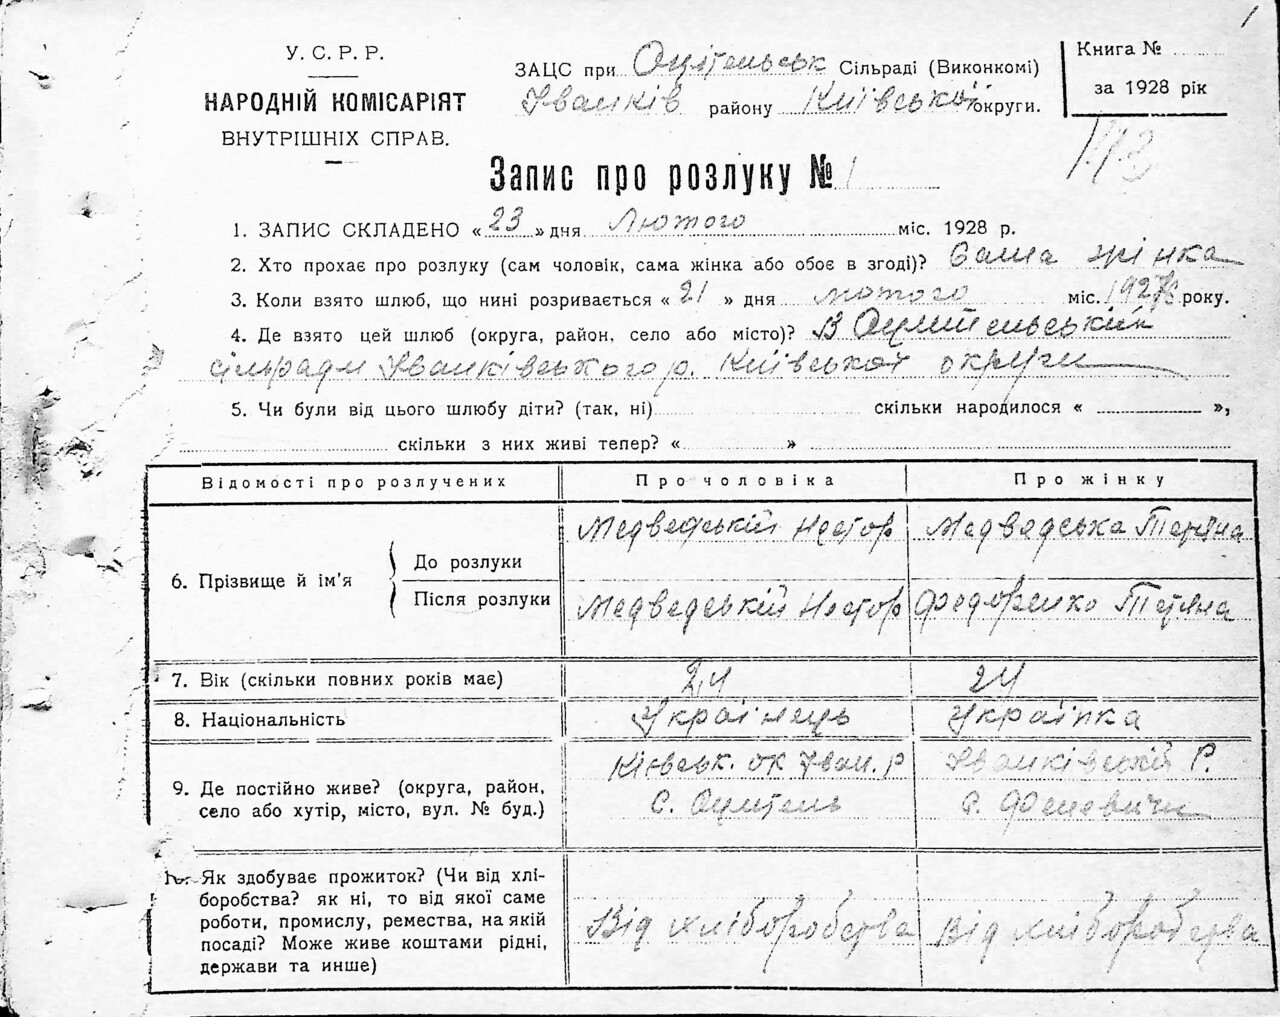 1
У. С. Р. Р.
НАРОДНІЙ КОМІСАРІЯТ
ВНУТРІШНІХ СПРАВ.
ЗАЦС при Оцітельськ Сільраді (Виконкомі)
Іванків району Київської округи.
Книга №
за 1928 рік
Запис про розлуку № 1
1. ЗАПИС СКЛАДЕНО « 23 » дня Лютого міс. 1928 р.
2. Хто прохає про розлуку (сам чоловік, сама жінка або обоє в згоді)? Сама жінка
3. Коли взято шлюб, що нині розривається « 21 » дня лютого міс. 192 року.
4. Де взято цей шлюб (округа, район, село або місто)? В Оцительський
сільради Іванківського р. Київської округи
5. Чи були від цього шлюбу діти? (так, ні) скільки народилося « »,
скільки з них живі тепер? « »
Відомості про розлучених Про чоловіка Про жінку
6. Прізвище й ім'я
До розлуки Медведській Нестор Медведська Тетяна
Після розлуки Медведській Нестор Федоренко Тетяна
7. Вік (скільки повних років має) 24 24
8. Національність Українець Українка
9. Де постійно живе? (округа, район, село або хутір, місто, вул. № буд.)
Київськ. ок Іван. р Іванківській Р.
С. Оцитель с. Феневичи
Як здобуває прожиток? (Чи від хлі-
боробства? як ні, то від якої саме
роботи, промислу, ремества, на якій
посаді? Може живе коштами рідні,
держави та инше)
Від хліборобства Від хліборобства